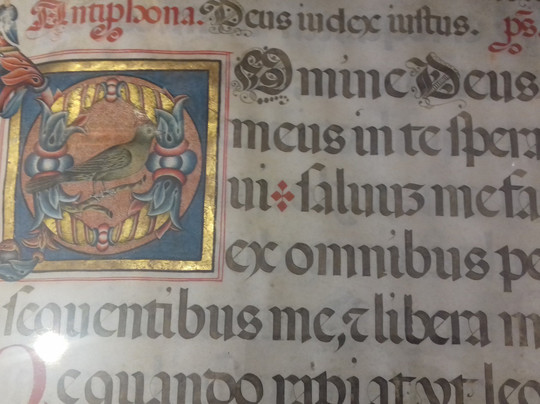 Antiphona. Deus iudex iustus. ps.
Domine Deus
meus in te spera
ui saluuʒ me fa
ex omnibus pe
sequentibus me, ⁊ libera m
e quando rapiat vt leo